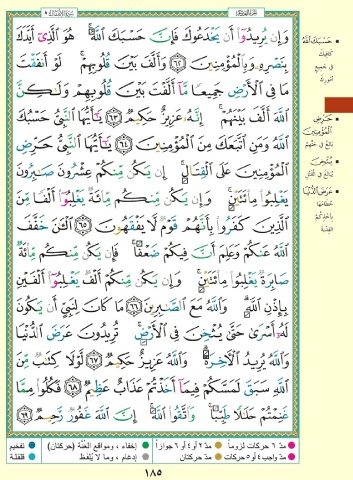 سورة الأنفال ٨
الجزء العاشر
وَإِن يُرِيدُوٓا۟ أَن يَخْدَعُوكَ فَإِنَّ حَسْبَكَ ٱللَّهُ ۚ هُوَ ٱلَّذِىٓ أَيَّدَكَ
بِنَصْرِهِۦ وَبِٱلْمُؤْمِنِينَ ﴿٦٢﴾ وَأَلَّفَ بَيْنَ قُلُوبِهِمْ ۚ لَوْ أَنفَقْتَ
مَا فِى ٱلْأَرْضِ جَمِيعًا مَّآ أَلَّفْتَ بَيْنَ قُلُوبِهِمْ وَلَٰكِنَّ
ٱللَّهَ أَلَّفَ بَيْنَهُمْ ۚ إِنَّهُۥ عَزِيزٌ حَكِيمٌ ﴿٦٣﴾ يَٰٓأَيُّهَا ٱلنَّبِىُّ حَسْبُكَ
ٱللَّهُ وَمَنِ ٱتَّبَعَكَ مِنَ ٱلْمُؤْمِنِينَ ﴿٦٤﴾ يَٰٓأَيُّهَا ٱلنَّبِىُّ حَرِّضِ
ٱلْمُؤْمِنِينَ عَلَى ٱلْقِتَالِ ۚ إِن يَكُن مِّنكُمْ عِشْرُونَ صَٰبِرُونَ
يَغْلِبُوا۟ مِا۟ئَتَيْنِ ۚ وَإِن يَكُن مِّنكُم مِّا۟ئَةٌ يَغْلِبُوٓا۟ أَلْفًا مِّنَ
ٱلَّذِينَ كَفَرُوا۟ بِأَنَّهُمْ قَوْمٌ لَّا يَفْقَهُونَ ﴿٦٥﴾ ٱلْـَٰٔنَ خَفَّفَ
ٱللَّهُ عَنكُمْ وَعَلِمَ أَنَّ فِيكُمْ ضَعْفًا ۚ فَإِن يَكُن مِّنكُم مِّا۟ئَةٌ
صَابِرَةٌ يَغْلِبُوا۟ مِا۟ئَتَيْنِ ۚ وَإِن يَكُن مِّنكُمْ أَلْفٌ يَغْلِبُوٓا۟ أَلْفَيْنِ
بِإِذْنِ ٱللَّهِ ۗ وَٱللَّهُ مَعَ ٱلصَّٰبِرِينَ ﴿٦٦﴾ مَا كَانَ لِنَبِىٍّ أَن يَكُونَ
لَهُۥٓ أَسْرَىٰ حَتَّىٰ يُثْخِنَ فِى ٱلْأَرْضِ ۚ تُرِيدُونَ عَرَضَ ٱلدُّنْيَا
وَٱللَّهُ يُرِيدُ ٱلْـَٔاخِرَةَ ۗ وَٱللَّهُ عَزِيزٌ حَكِيمٌ ﴿٦٧﴾ لَّوْلَا كِتَٰبٌ مِّنَ
ٱللَّهِ سَبَقَ لَمَسَّكُمْ فِيمَآ أَخَذْتُمْ عَذَابٌ عَظِيمٌ ﴿٦٨﴾ فَكُلُوا۟ مِمَّا
غَنِمْتُمْ حَلَٰلًا طَيِّبًا ۚ وَٱتَّقُوا۟ ٱللَّهَ ۚ إِنَّ ٱللَّهَ غَفُورٌ رَّحِيمٌ ﴿٦٩﴾
حَسْبَكَ اللَّهُ
كَافِيكَ
فِي جَمِيعِ
أُمُورِكَ
حَرِّضِ
الْمُؤْمِنِينَ
بَالِغْ فِي حَثِّهِمْ
يُثْخِنَ
يُبَالِغَ فِي الْقَتْلِ
عَرَضَ الدُّنْيَا
حُطَامَهَا
بِأَخْذِكُمُ
الْفِدْيَةَ
مدّ ٦ حركات لزوماً
مدّ ٢ أو ٤ أو ٦ جوازاً
إخفاء، ومواقع الغُنَّة (حركتان)
تفخيم
مدّ واجب ٤ أو ٥ حركات
مدّ حركتان
إدغام، وما لا يُلفَظ
قلقلة
١٨٥